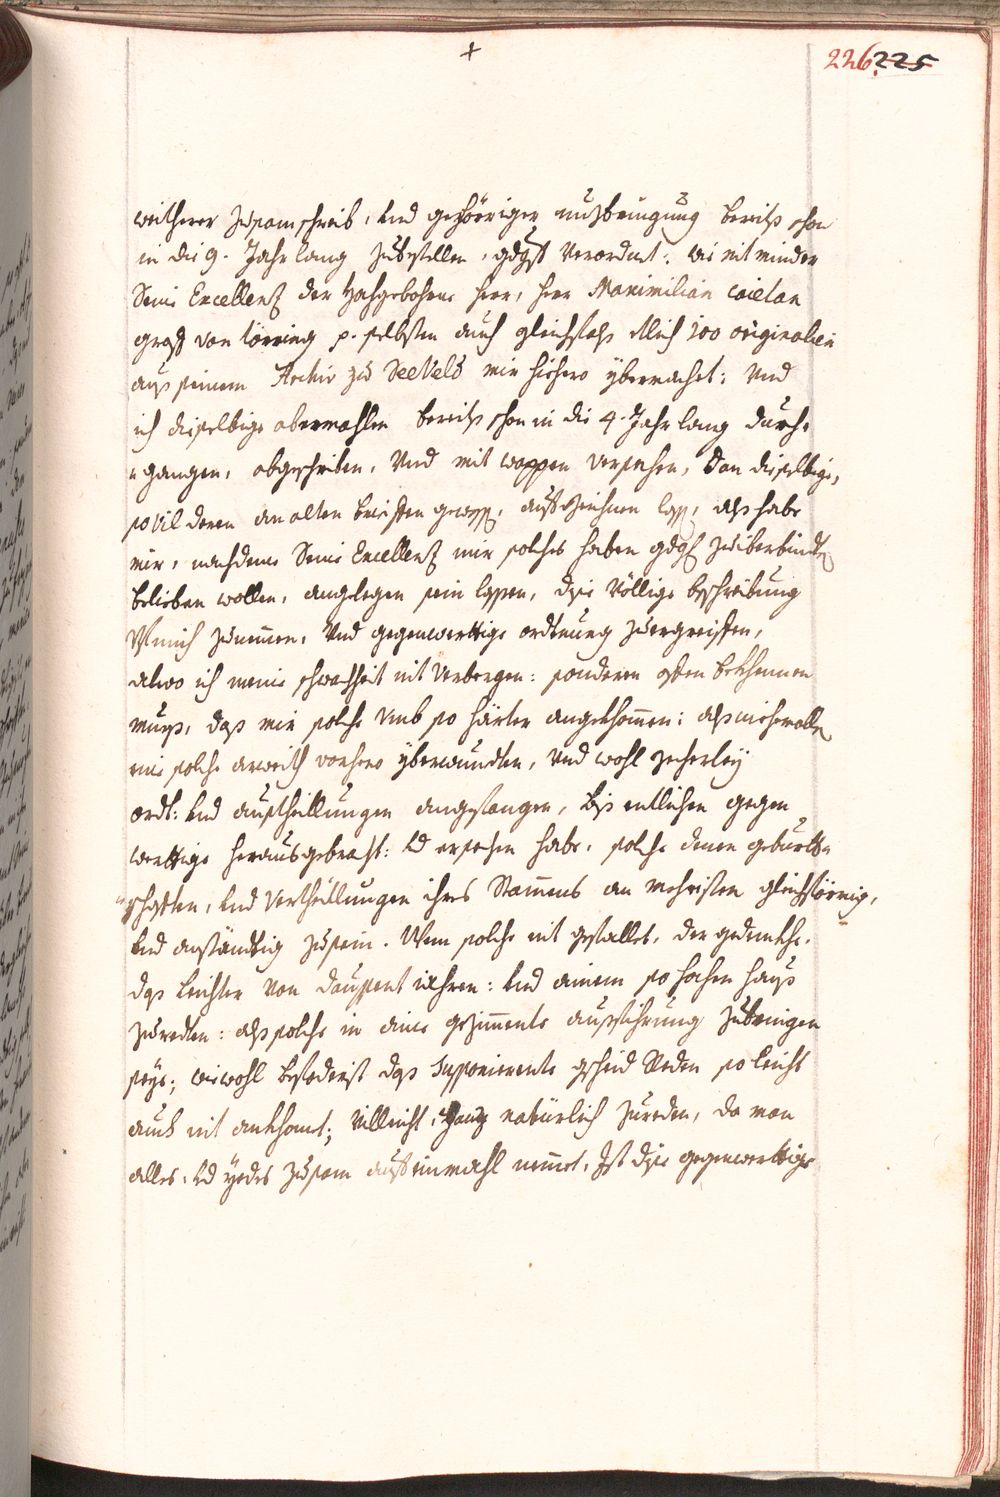 +
226. 225
weitherer zusam schreib, und gehöriger außbringung bereiths schon
in die 9. Jahr lang zubestellen, gdgst verordnet: wie nit minder
Seine Excellenz der Hochgebohrne Herr, Herr Maximilian Caietan
Graff von Törring p. selbsten auch gleichfahls etlich 100 originalien
auß seinem Archiv zu Seeveld mir hiehero ybermachet: Und
ich dieselbige abermahlen bereiths schon in die 4. Jahr lang durch-
-gangen, abgeschriben, Und mit wappen versehen, Dan dieselbige,
so vil deren an alten brieffen gewest, auszeichnen lassen, Alß habe
mir, nachdeme Seine Excellenz mir solches haben gdgst zuiberbinden
belieben wollen, angelegen sein lassen, dise Völlige beschreibung
Vf mich zunemmen, Und gegenwerttige ordtnung zuergreiffen,
alwo ich meine schwachheit nit Verbergen: sonderen offen bekhennen
mueß, daß mir solche umb so härter angekhomen: alß niehmallen
eine solche arweith vorhero yberwundten, und wohl zecherley
ordt: und austheillungen angefangen, biß entlichen gegen
werttige herausgebracht: Ud ersehen habe, solche denen geburtts-
-schafften, und Vertheillungen ihres Stammens am mehristen gleichförmig,
und anständtig zusein. Wem solche nit gefallet, der gedenkhe,
daß leichter von dausent ihren: und ainem so hochen hauß
zuredten: alß solche in eine gezimmente ausfihrung zubringen
seye; wiewohl besoderist daß Supponierente gscheid Reden so leicht
auch nit ankhomt; Villeicht, ganz natürlich zureden, da man
alles, Ud yedes zusam auf einmahl nemmet, Ist dise gegenwerttige